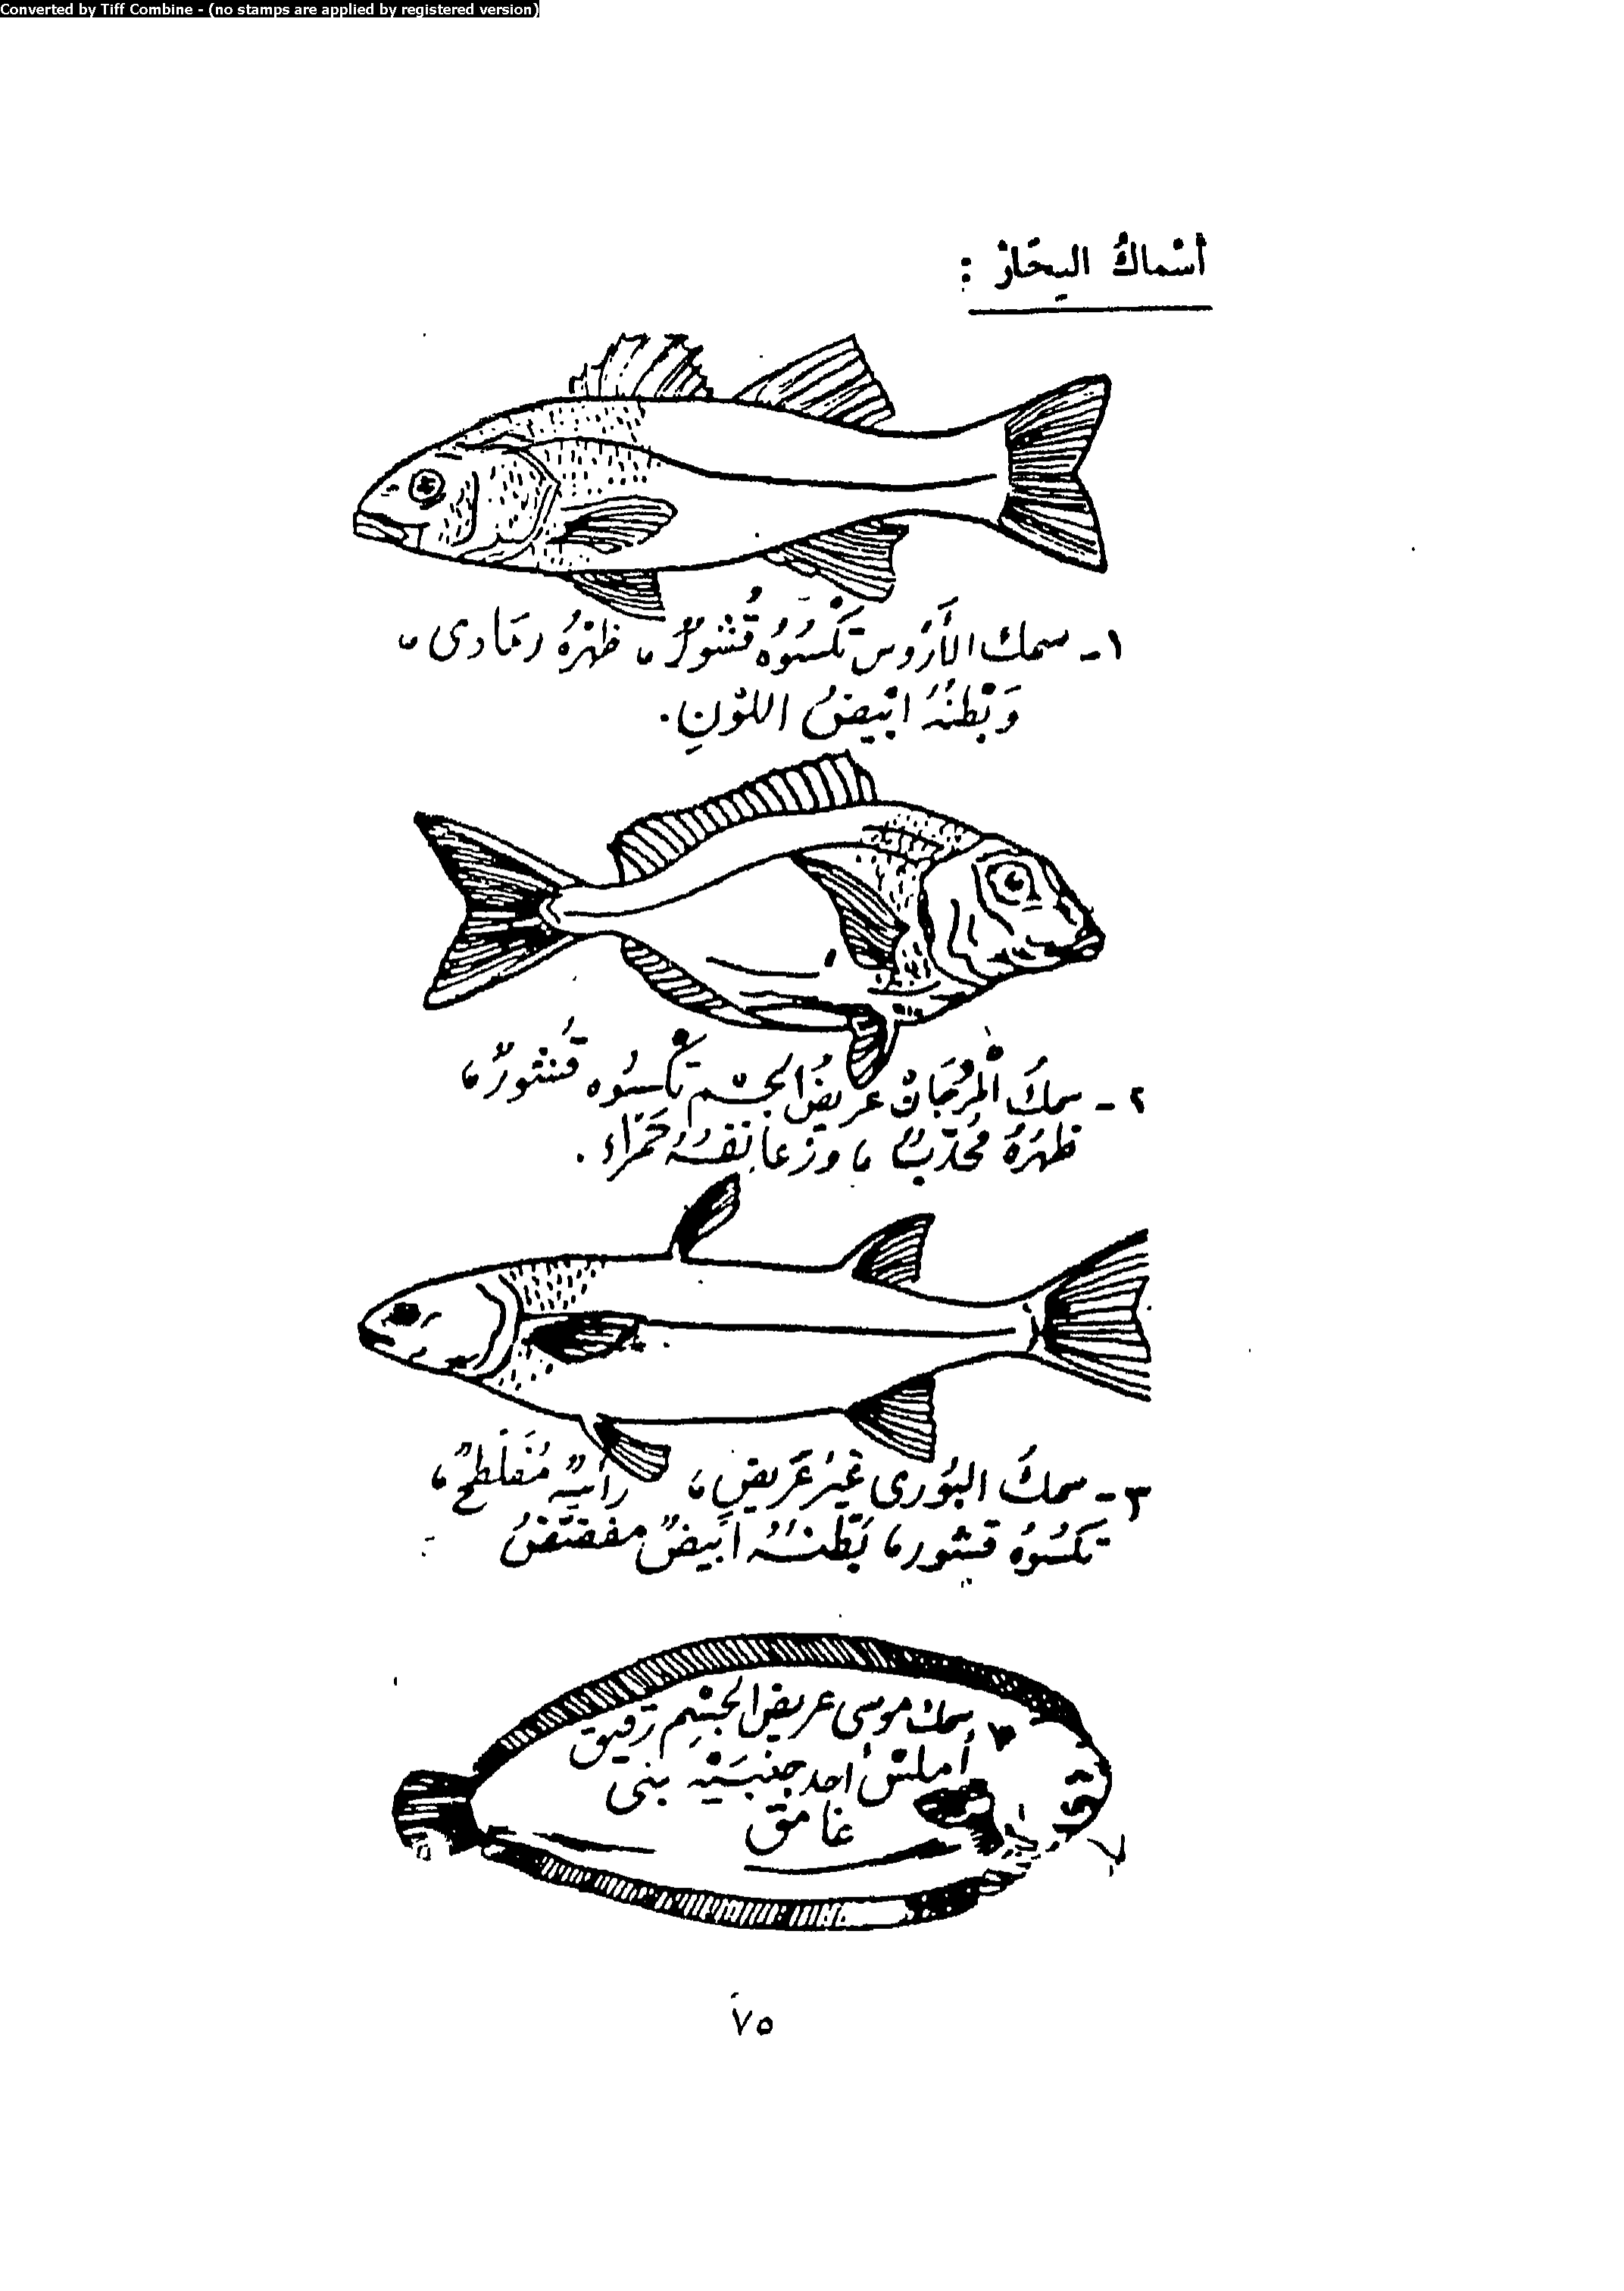 Converted by Tiff Combine - (no stamps are applied by registered version)
أسْماكُ البِحَارْ :
١- سمك الأَرُوس تَكْسُوُه قُشورٌ، ظهْرُهُ رمَادى،
وَبَطْنُهُ ابْيضُ اللوْنِ.
٢- سمكُ الْمرْجَانْ عريضُ الجسْم تَكْسُوُه قُشورٌ،
ظهرُهُ مُحدّبٌ، وزعانفُهُ حَمْرَاء.
٣- سمكُ البُورى غَيرُ عَريضٍ، رأسهُ مُفَلطحٌ،
تكسُوهُ قشور، بَطْنُهُ ابَيضٌ مفضفضُ
سمك موسى عريض الجسْمِ رَقيق
أملسْ أحد جنبيْه بنى
غامق
٧٥